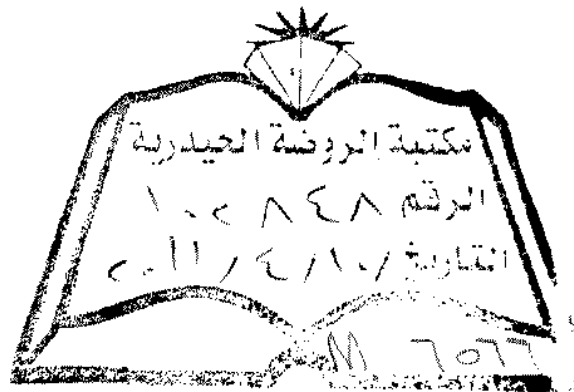 مكتبة الروضة الحيدرية
الرقم ١٠٢٨٤٨
التاريخ ٢٠١١/٤/١٠
M 7 0 6 6